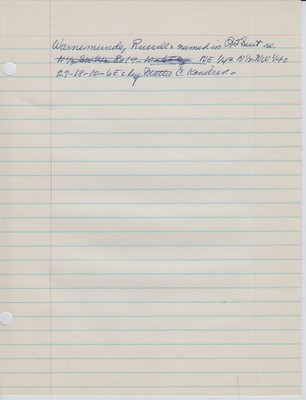 Warnimunde, Russell - named in QT Suit re.
N½ SW¼ 8 & 17-10-6E by NE¼ & N½ NW¼ &
27-18-10-6E & by Mattie C. Kendred.